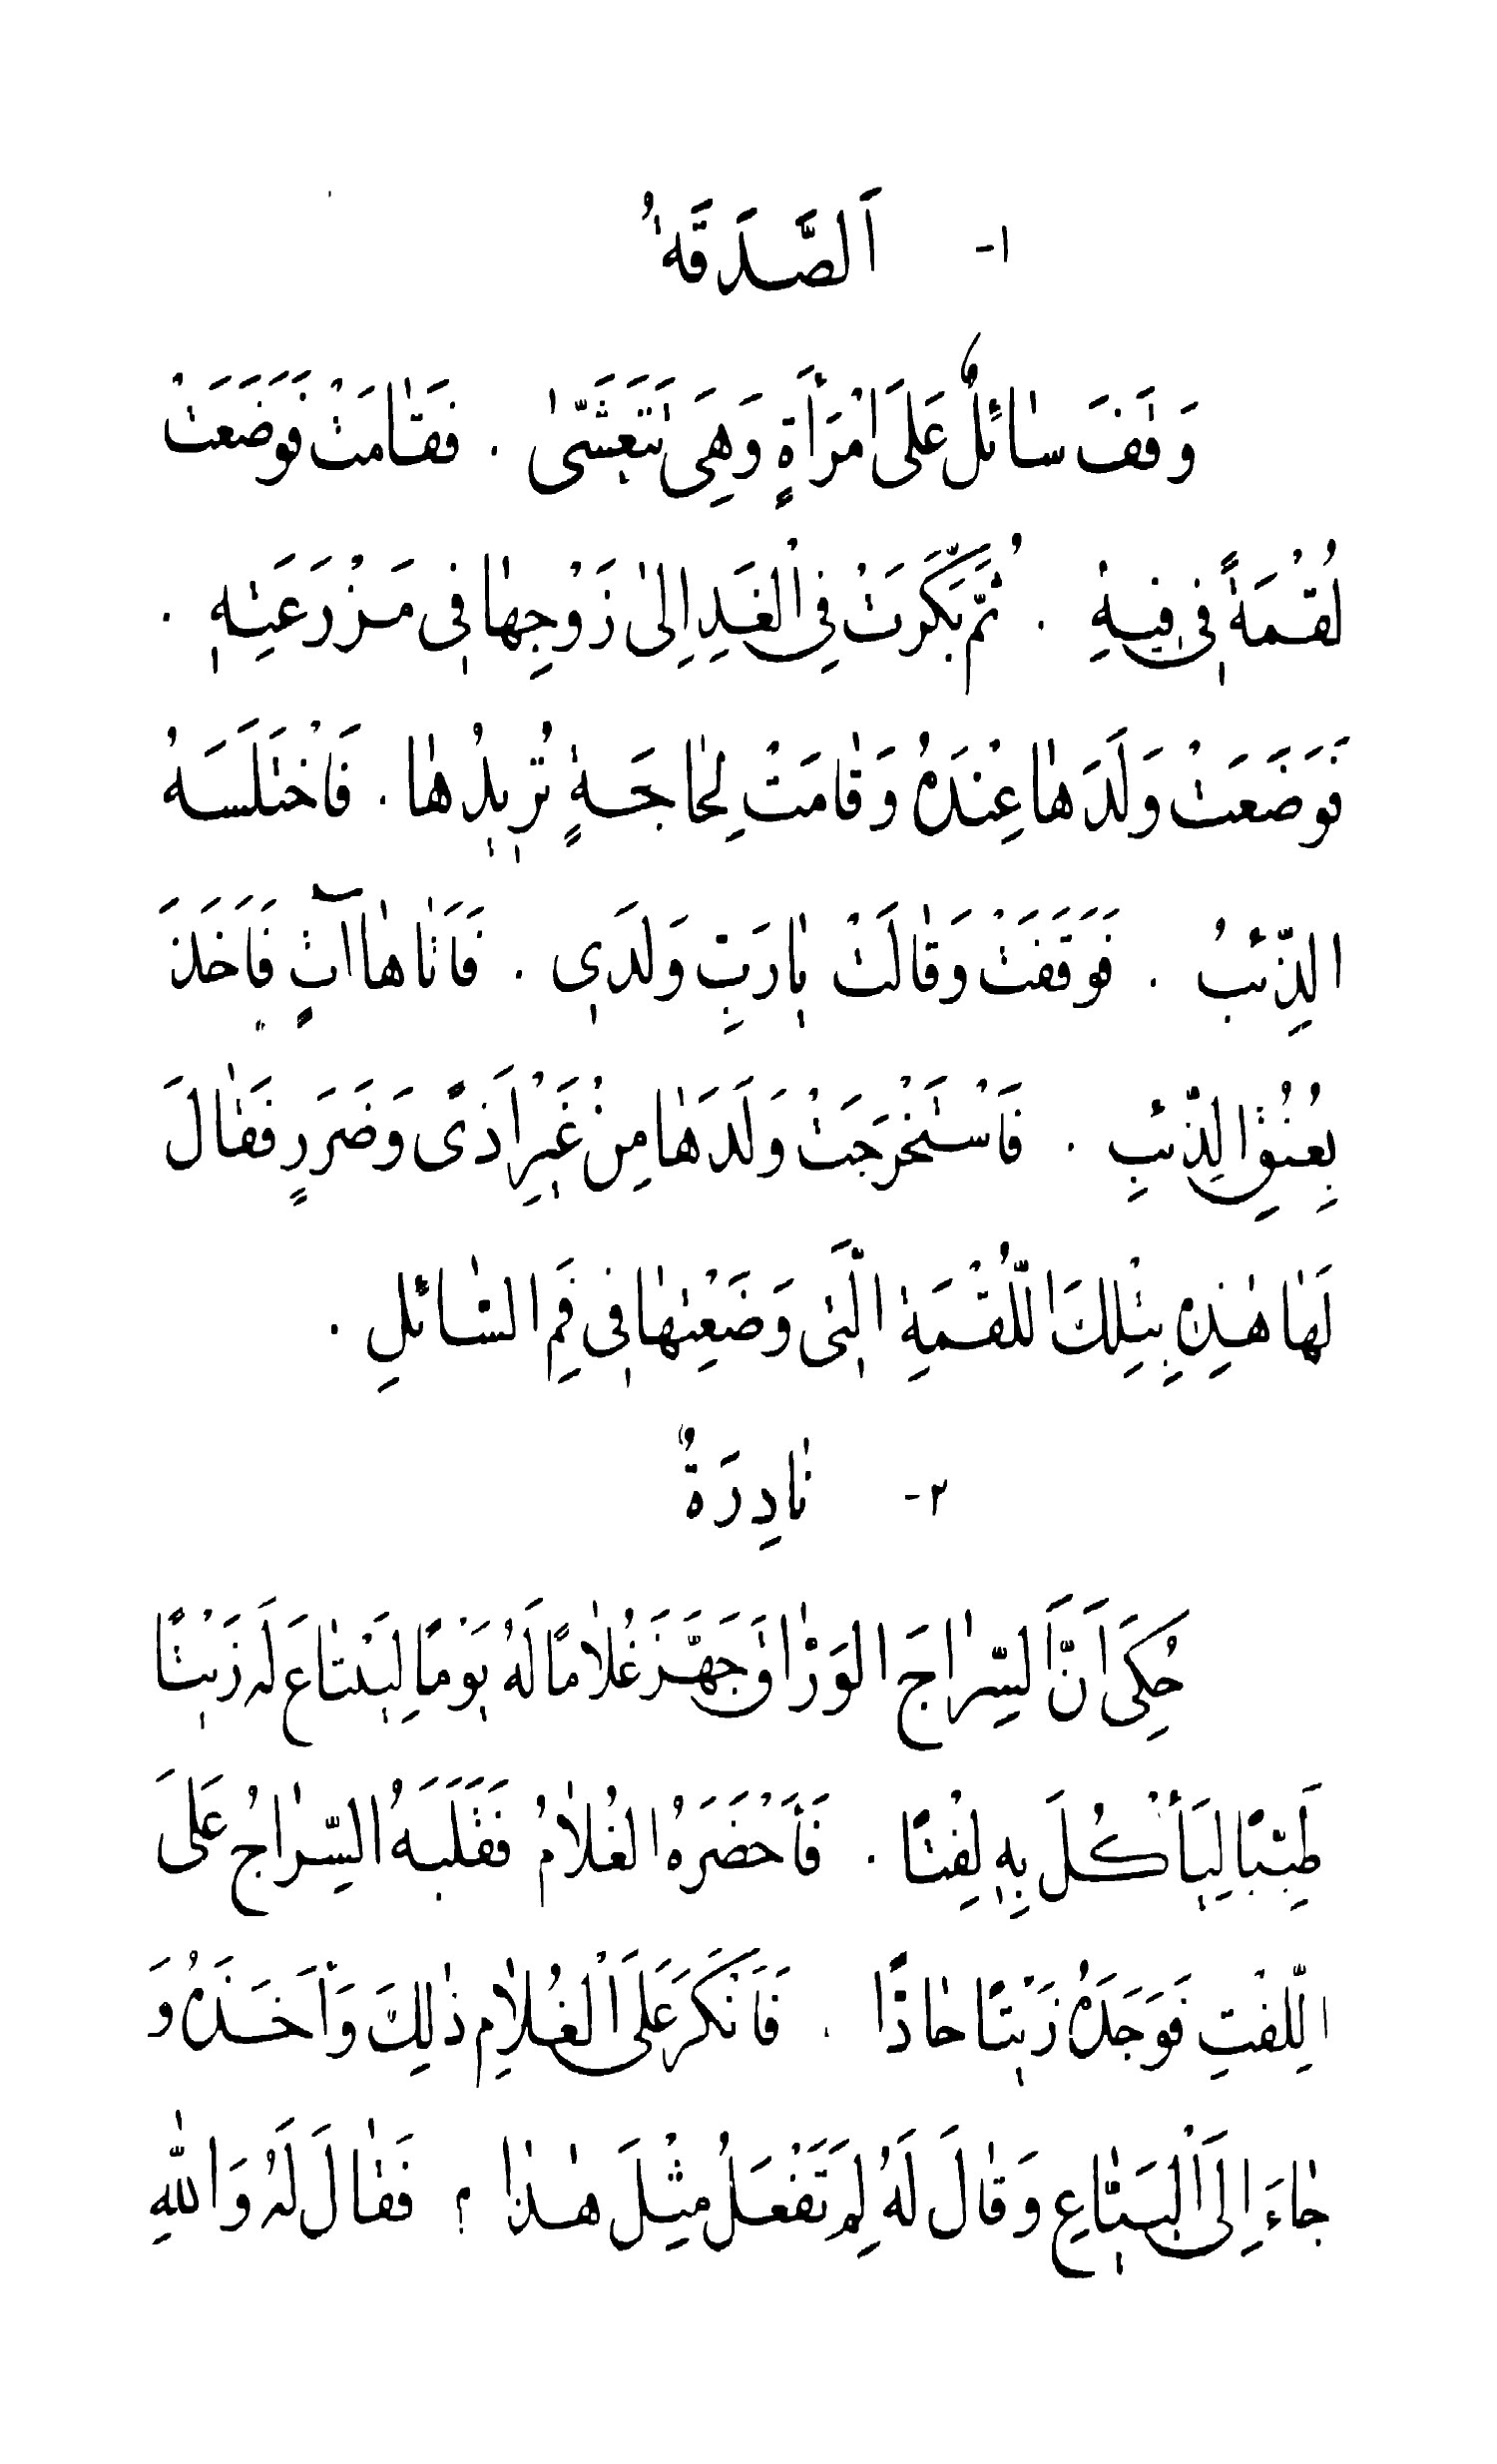 ١- اَلصَّدَقَةُ
وَقَفَ سَائِلٌ عَلَى امْرَأَةٍ وَهِيَ تَتَعَشّىٰ . فَقَامَتْ فَوَضَعَتْ
لُقْمَةً فِي فِيهِ . ثُمَّ بَكَّرَتْ فِي الْغَدِ اِلىٰ زَوْجِهَا فِي مَزْرَعَتِهِ .
فَوَضَعَتْ وَلَدَهَا عِنْدَهُ وَقَامَتْ لِحَاجَةٍ تُرِيدُهَا . فَاخْتَلَسَهُ
الذِّئبُ . فَوَقَفَتْ وَقَالَتْ يَارَبِّ وَلَدَي . فَاَتَاهَا آتٍ فَاَخَذَ
بِعُنُقِ الذِّئبِ . فَاسْتَخْرَجَتْ وَلَدَهَا مِنْ غَيْرِ اَذىً وَضَرَرٍ فَقَالَ
لَهَا هٰذِهِ بِتِلْكَ اللُّقْمَةِ الَّتِي وَضَعْتِهَا فِي فَمِ السَّائلِ .
٢- نَادِرَةٌ
حُكِيَ اَنَّ السِّرَاجَ الوَرَّاقَ جَهَّزَ غُلاَمًا لَهُ يَوْمًا لِيَبْتَاعَ لَهُ زَيْتًا
طَيِّبًا لِيَأْكُلَ بِهِ لِفْتًا . فَأَحْضَرَهُ الغُلاَمُ فَقَلَبَهُ السِّرَاجُ عَلَى
اللِّفْتِ فَوَجَدَهُ زَيْتًا حَاذًّا . فَاَنْكَرَ عَلَى الْغُلاَمِ ذٰلِكَ وَاَخَذَهُ وَ
جَاءَ اِلَى الْبَيَّاعِ وَقَالَ لَهُ لِمَ تَفْعَلُ مِثْلَ هٰذَا ؟ فَقَالَ لَهُ وَاللهِ